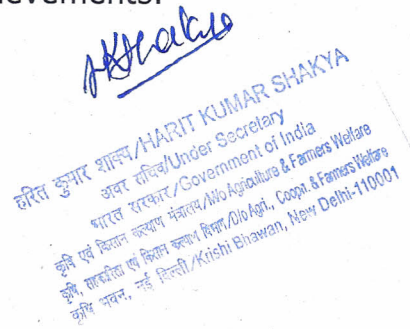 evements.
हरित कुमार शाक्य/HARIT KUMAR SHAKYA
अवर सचिव/Under Secretary
भारत सरकार/Government of India
कृषि एवं किसान कल्याण मंत्रालय/M/o Agriculture & Farmers Welfare
कृषि, सहकारिता एवं किसान कल्याण विभाग/D/o Agri., Coopn. & Farmers Welfare
कृषि भवन, नई दिल्ली/Krishi Bhawan, New Delhi-110001